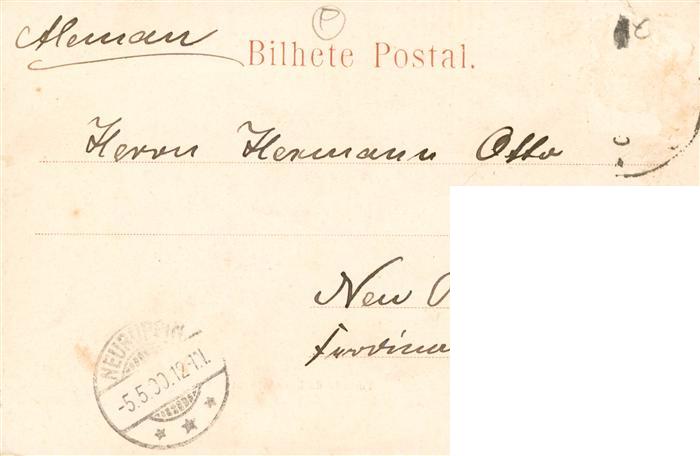 Aleman
Bilhete Postal.
Herrn Hermann Otto
Neu
NEURUPPIN
-5.5.00.12-1N.